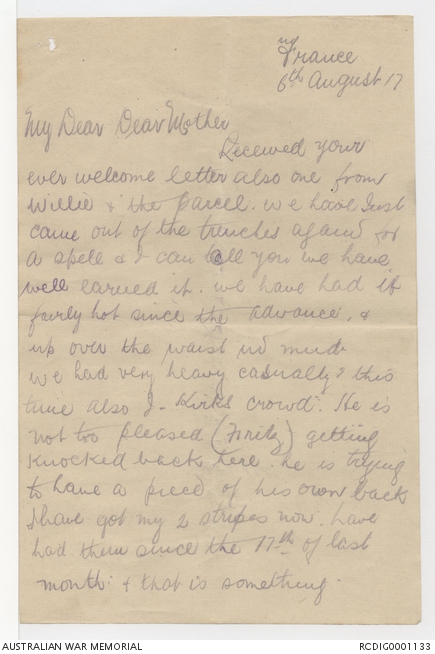 France
6th August 17
My Dear Dear Mother
Received your
ever welcome letter also one from
Willie & the Parcel. We have Just
came out of the trenches again for
a spell & I can tell you we have
well earned it. we have had it
fairly hot since the advance, &
up over the waist in mud
we had very heavy casually's this
time also J- Kirks crowd. He is
not too pleased (Fritz) getting
knocked back here. he is trying
to have a piece of his own back
I have got my 2 stripes now. have
had them since the 17th of last
month. & that is something.
AUSTRALIAN WAR MEMORIAL
RCDIG0001133